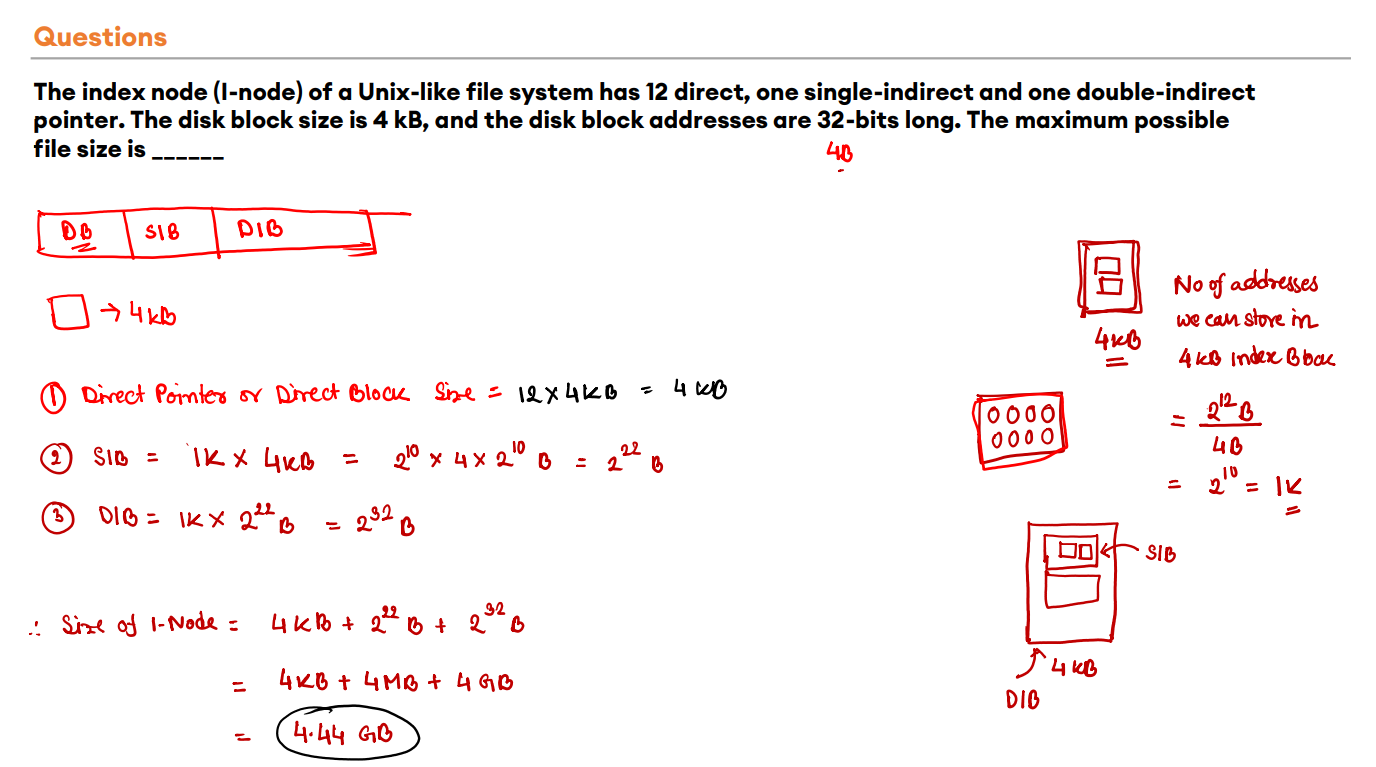 Questions
The index node (I-node) of a Unix-like file system has 12 direct, one single-indirect and one double-indirect
pointer. The disk block size is 4 kB, and the disk block addresses are 32-bits long. The maximum possible
file size is ______
4B
DB SIB DIB
→ 4kB
① Direct Pointer or Direct Block Size = 12 × 4KB = 4 KB
② SIB = 1K × 4KB = 2^10 × 4 × 2^10 B = 2^22 B
③ DIB = 1K × 2^22 B = 2^32 B
∴ Size of I-Node = 4KB + 2^22 B + 2^32 B
= 4KB + 4MB + 4 GB
= 4.44 GB
4KB
No of addresses
we can store in
4KB Index Block
= 2^12 B / 4B
= 2^10 = 1K
SIB
4KB
DIB